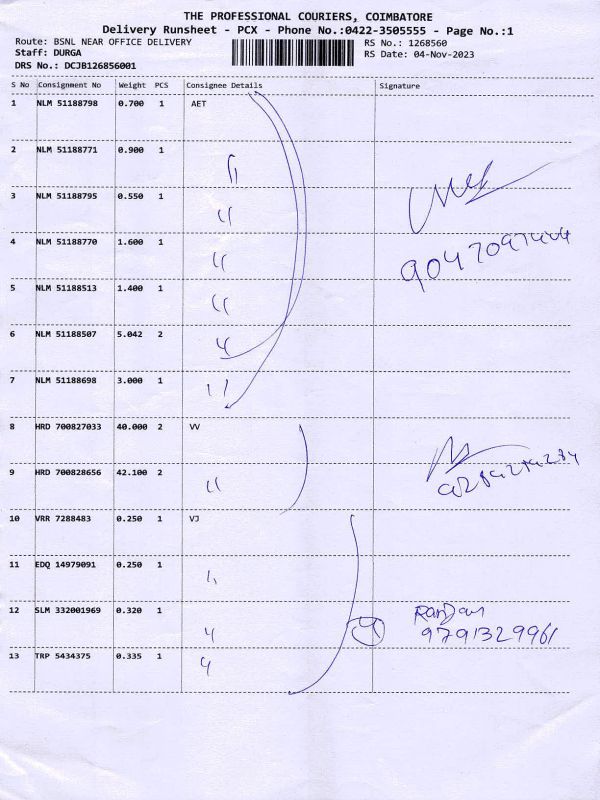 THE PROFESSIONAL COURIERS, COIMBATORE
Delivery Runsheet - PCX - Phone No.:0422-3505555 - Page No.:1
Route: BSNL NEAR OFFICE DELIVERY RS No.: 1268560
Staff: DURGA RS Date: 04-Nov-2023
DRS No.: DCJB126856001
S No Consignment No Weight PCS Consignee Details Signature
1 NLM 51188798 0.700 1 AET
2 NLM 51188771 0.900 1 "
3 NLM 51188795 0.550 1 "
4 NLM 51188770 1.600 1 "
5 NLM 51188513 1.400 1 "
6 NLM 51188507 5.042 2 "
7 NLM 51188698 3.000 1 "
8 HRD 700827033 40.000 2 VV
9 HRD 700828656 42.100 2 "
10 VRR 7288483 0.250 1 VJ
11 EDQ 14979091 0.250 1 "
12 SLM 332001969 0.320 1 " 4 Ranjan
9791329961
13 TRP 5434375 0.335 1 "